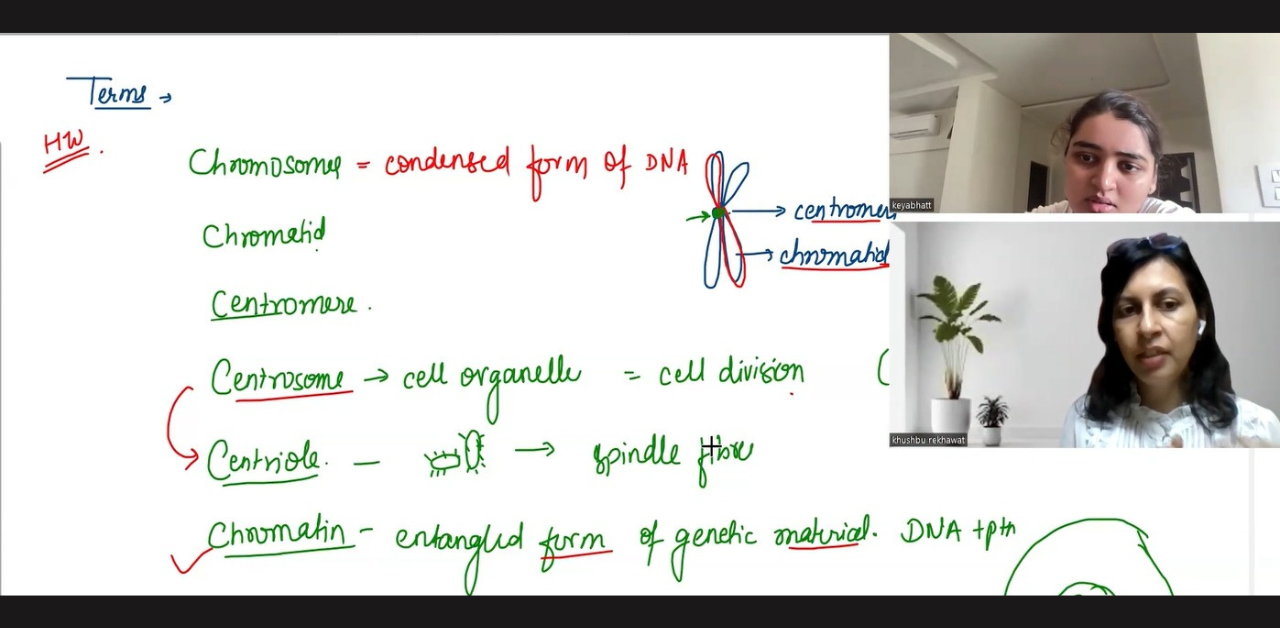 Terms →
HW.
Chromosomes = condensed form of DNA
Chromatid
→ centromer
→ chromatid
Centromere.
Centrosome → cell organelle = cell division (
Centriole. — → spindle fibre
Chromatin – entangled form of genetic material. DNA + ptn
keyabhatt
khushbu rekhawat